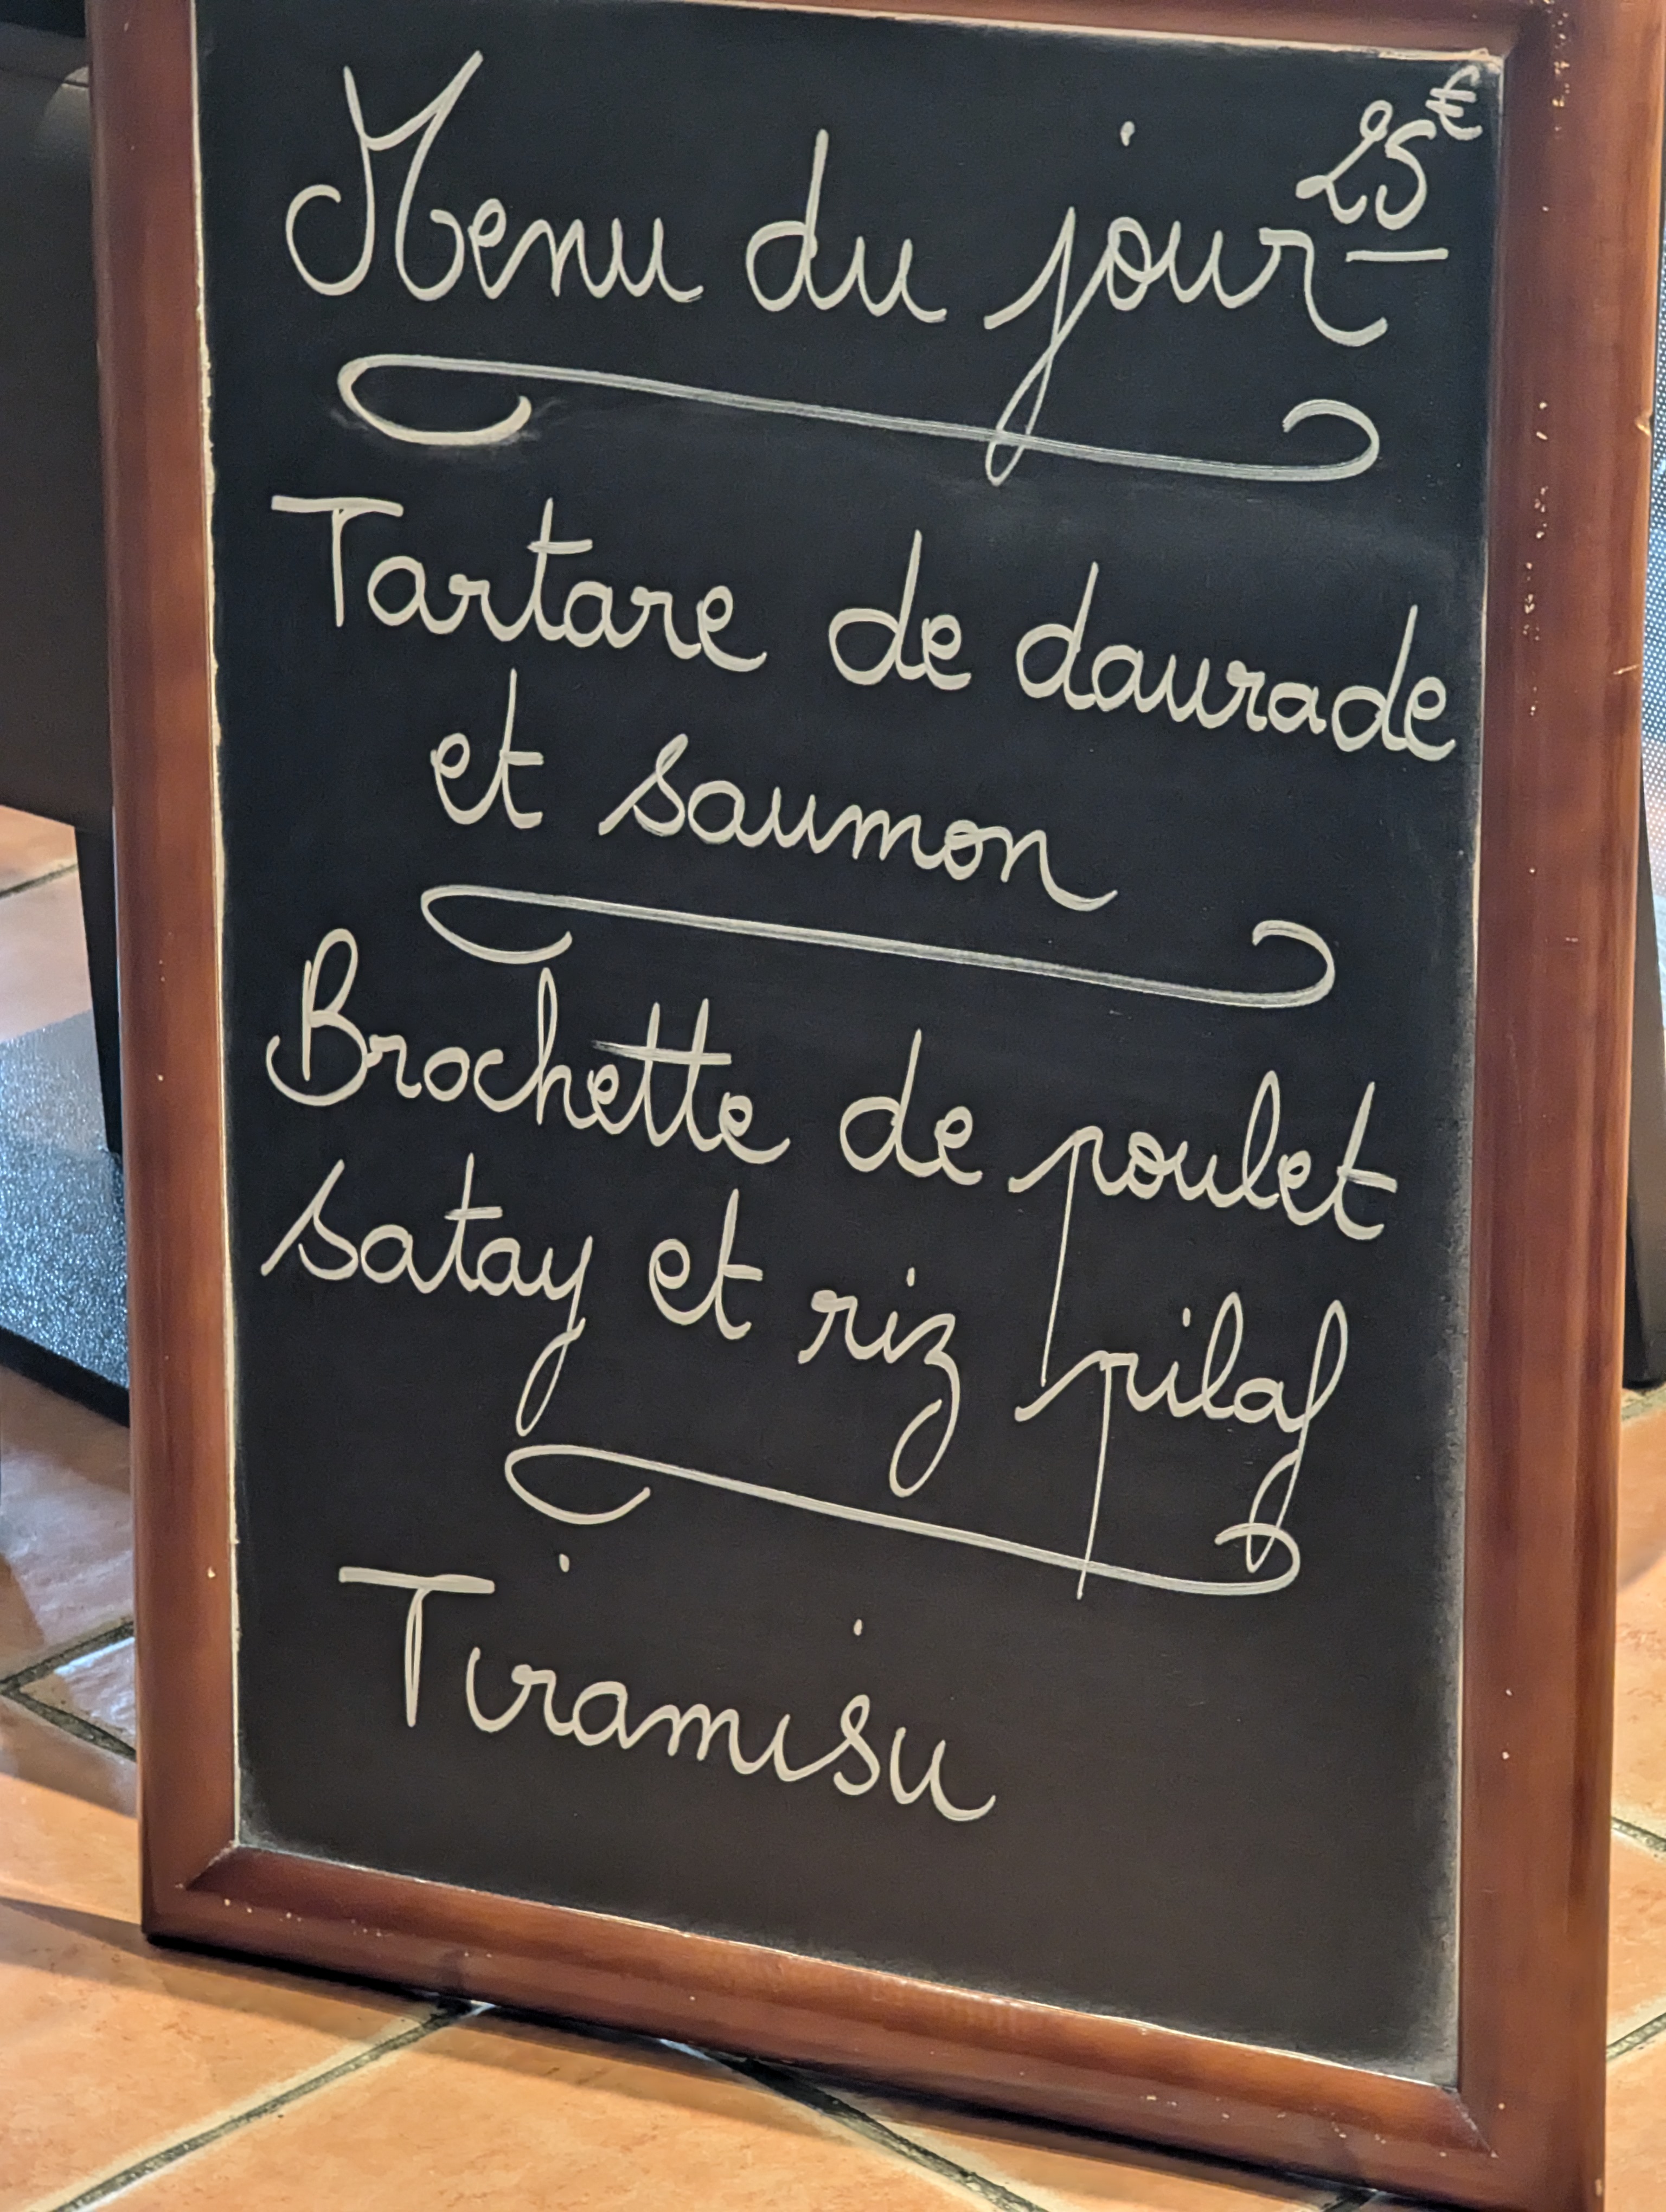 Menu du jour 25€
Tartare de daurade
et saumon
Brochette de poulet
satay et riz pilaf
Tiramisu